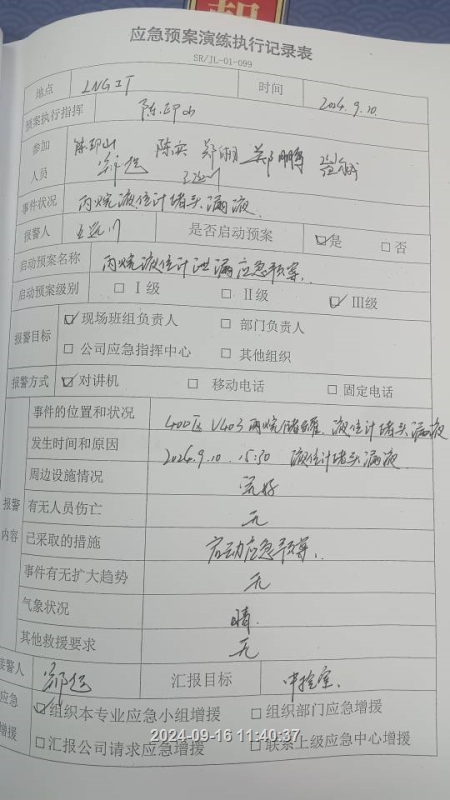 应急预案演练执行记录表
SR/JL-01-099
地点 LNG工厂 时间 2024.9.10
预案执行指挥 陈印山
参加 陈印山 陈实 郑湖 郑鹏
人员 郭恒
事件状况 丙烷液位计堵头漏液
报警人 是否启动预案 ☑是 □否
启动预案名称 丙烷液位计泄漏应急预案
启动预案级别 □Ⅰ级 □Ⅱ级 ☑Ⅲ级
报警目标 ☑现场班组负责人 □部门负责人
□公司应急指挥中心 □其他组织
报警方式 ☑对讲机 □移动电话 □固定电话
事件的位置和状况 400区V403丙烷储罐液位计堵头漏液
发生时间和原因 2024.9.10 15:30 液位计堵头漏液
周边设施情况 完好
报警 有无人员伤亡 无
内容 已采取的措施 启动应急预案
事件有无扩大趋势 无
气象状况 晴
其他救援要求 无
接警人 郭恒 汇报目标 中控室
应急 ☑组织本专业应急小组增援 □组织部门应急增援
增援 □汇报公司请求应急增援 □联系上级应急中心增援
2024-09-16 11:40:37